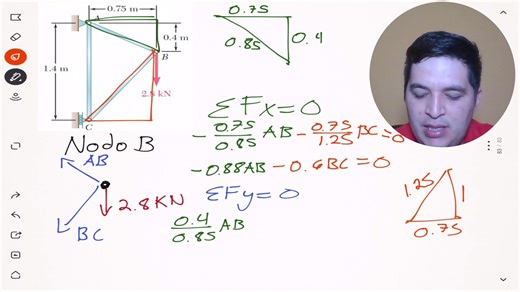 0.75 m
0.4 m
1.4 m
B
2.8 kN
C
0.75
0.85
0.4
ΣFx=0
- 0.75/0.85 AB - 0.75/1.25 BC = 0
-0.88AB - 0.6BC = 0
Nodo B
AB
2.8KN
BC
ΣFy=0
0.4/0.85 AB
1.25
1
0.75